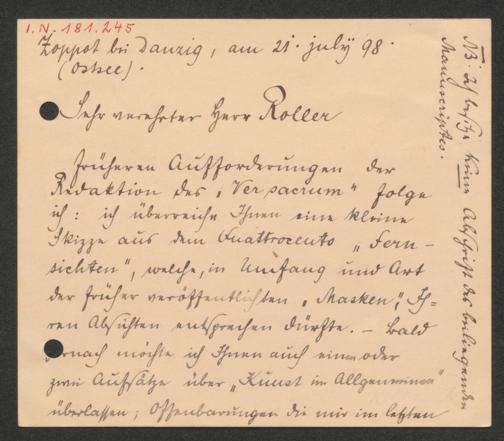 I.N. 181.245
Zoppot bei Danzig, am 21. july 98.
(Ostsee).
Sehr verehrter Herr Roller
früheren Aufforderungen der
Redaktion des „Ver sacrum" folge
ich: ich überreiche Ihnen eine kleine
Skizze aus dem Quattrocento „Fern-
sichten", welche, in Umfang und Art
der früher veröffentlichten „Masken", Ih-
ren Absichten entsprechen dürfte. – Bald
darnach möchte ich Ihnen auch einen oder
zwei Aufsätze über „Kunst im Allgemeinen"
überlassen; Offenbarungen die mir im letzten
NB: Ich besitze keine Abschrift des beiliegenden
Manuscriptes.